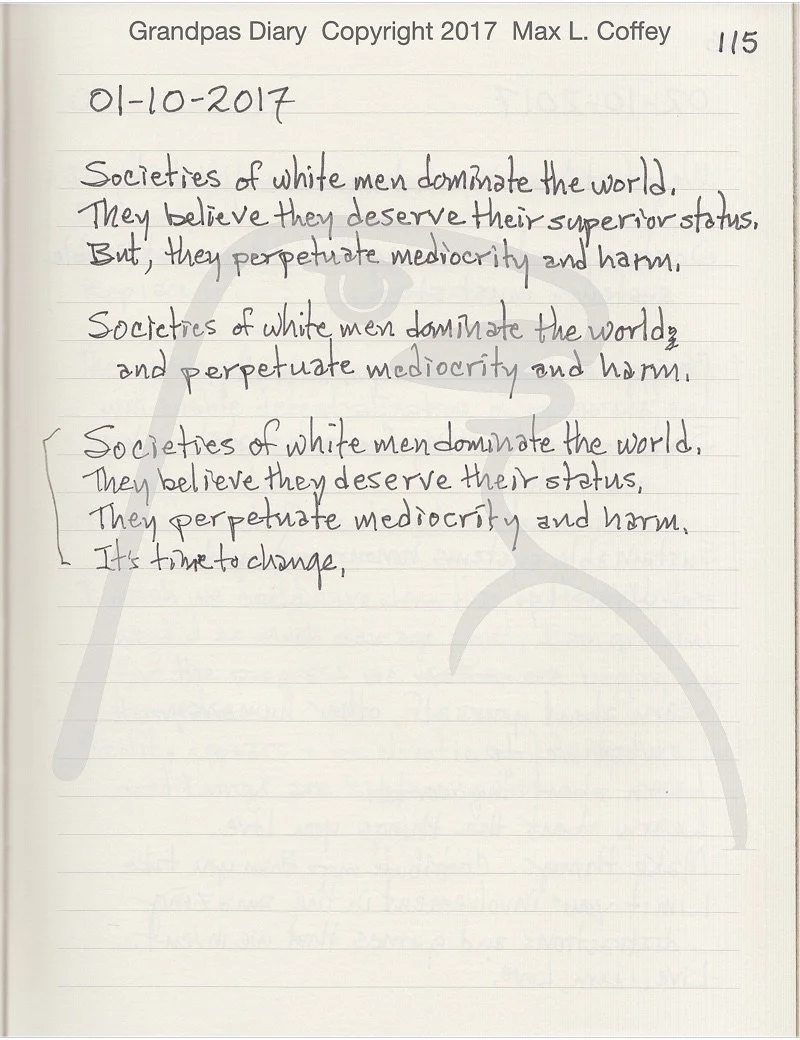 Grandpas Diary Copyright 2017 Max L. Coffey
115
01-10-2017
Societies of white men dominate the world.
They believe they deserve their superior status.
But, they perpetuate mediocrity and harm.
Societies of white men dominate the world
and perpetuate mediocrity and harm.
Societies of white men dominate the world.
They believe they deserve their status.
They perpetuate mediocrity and harm.
It's time to change.